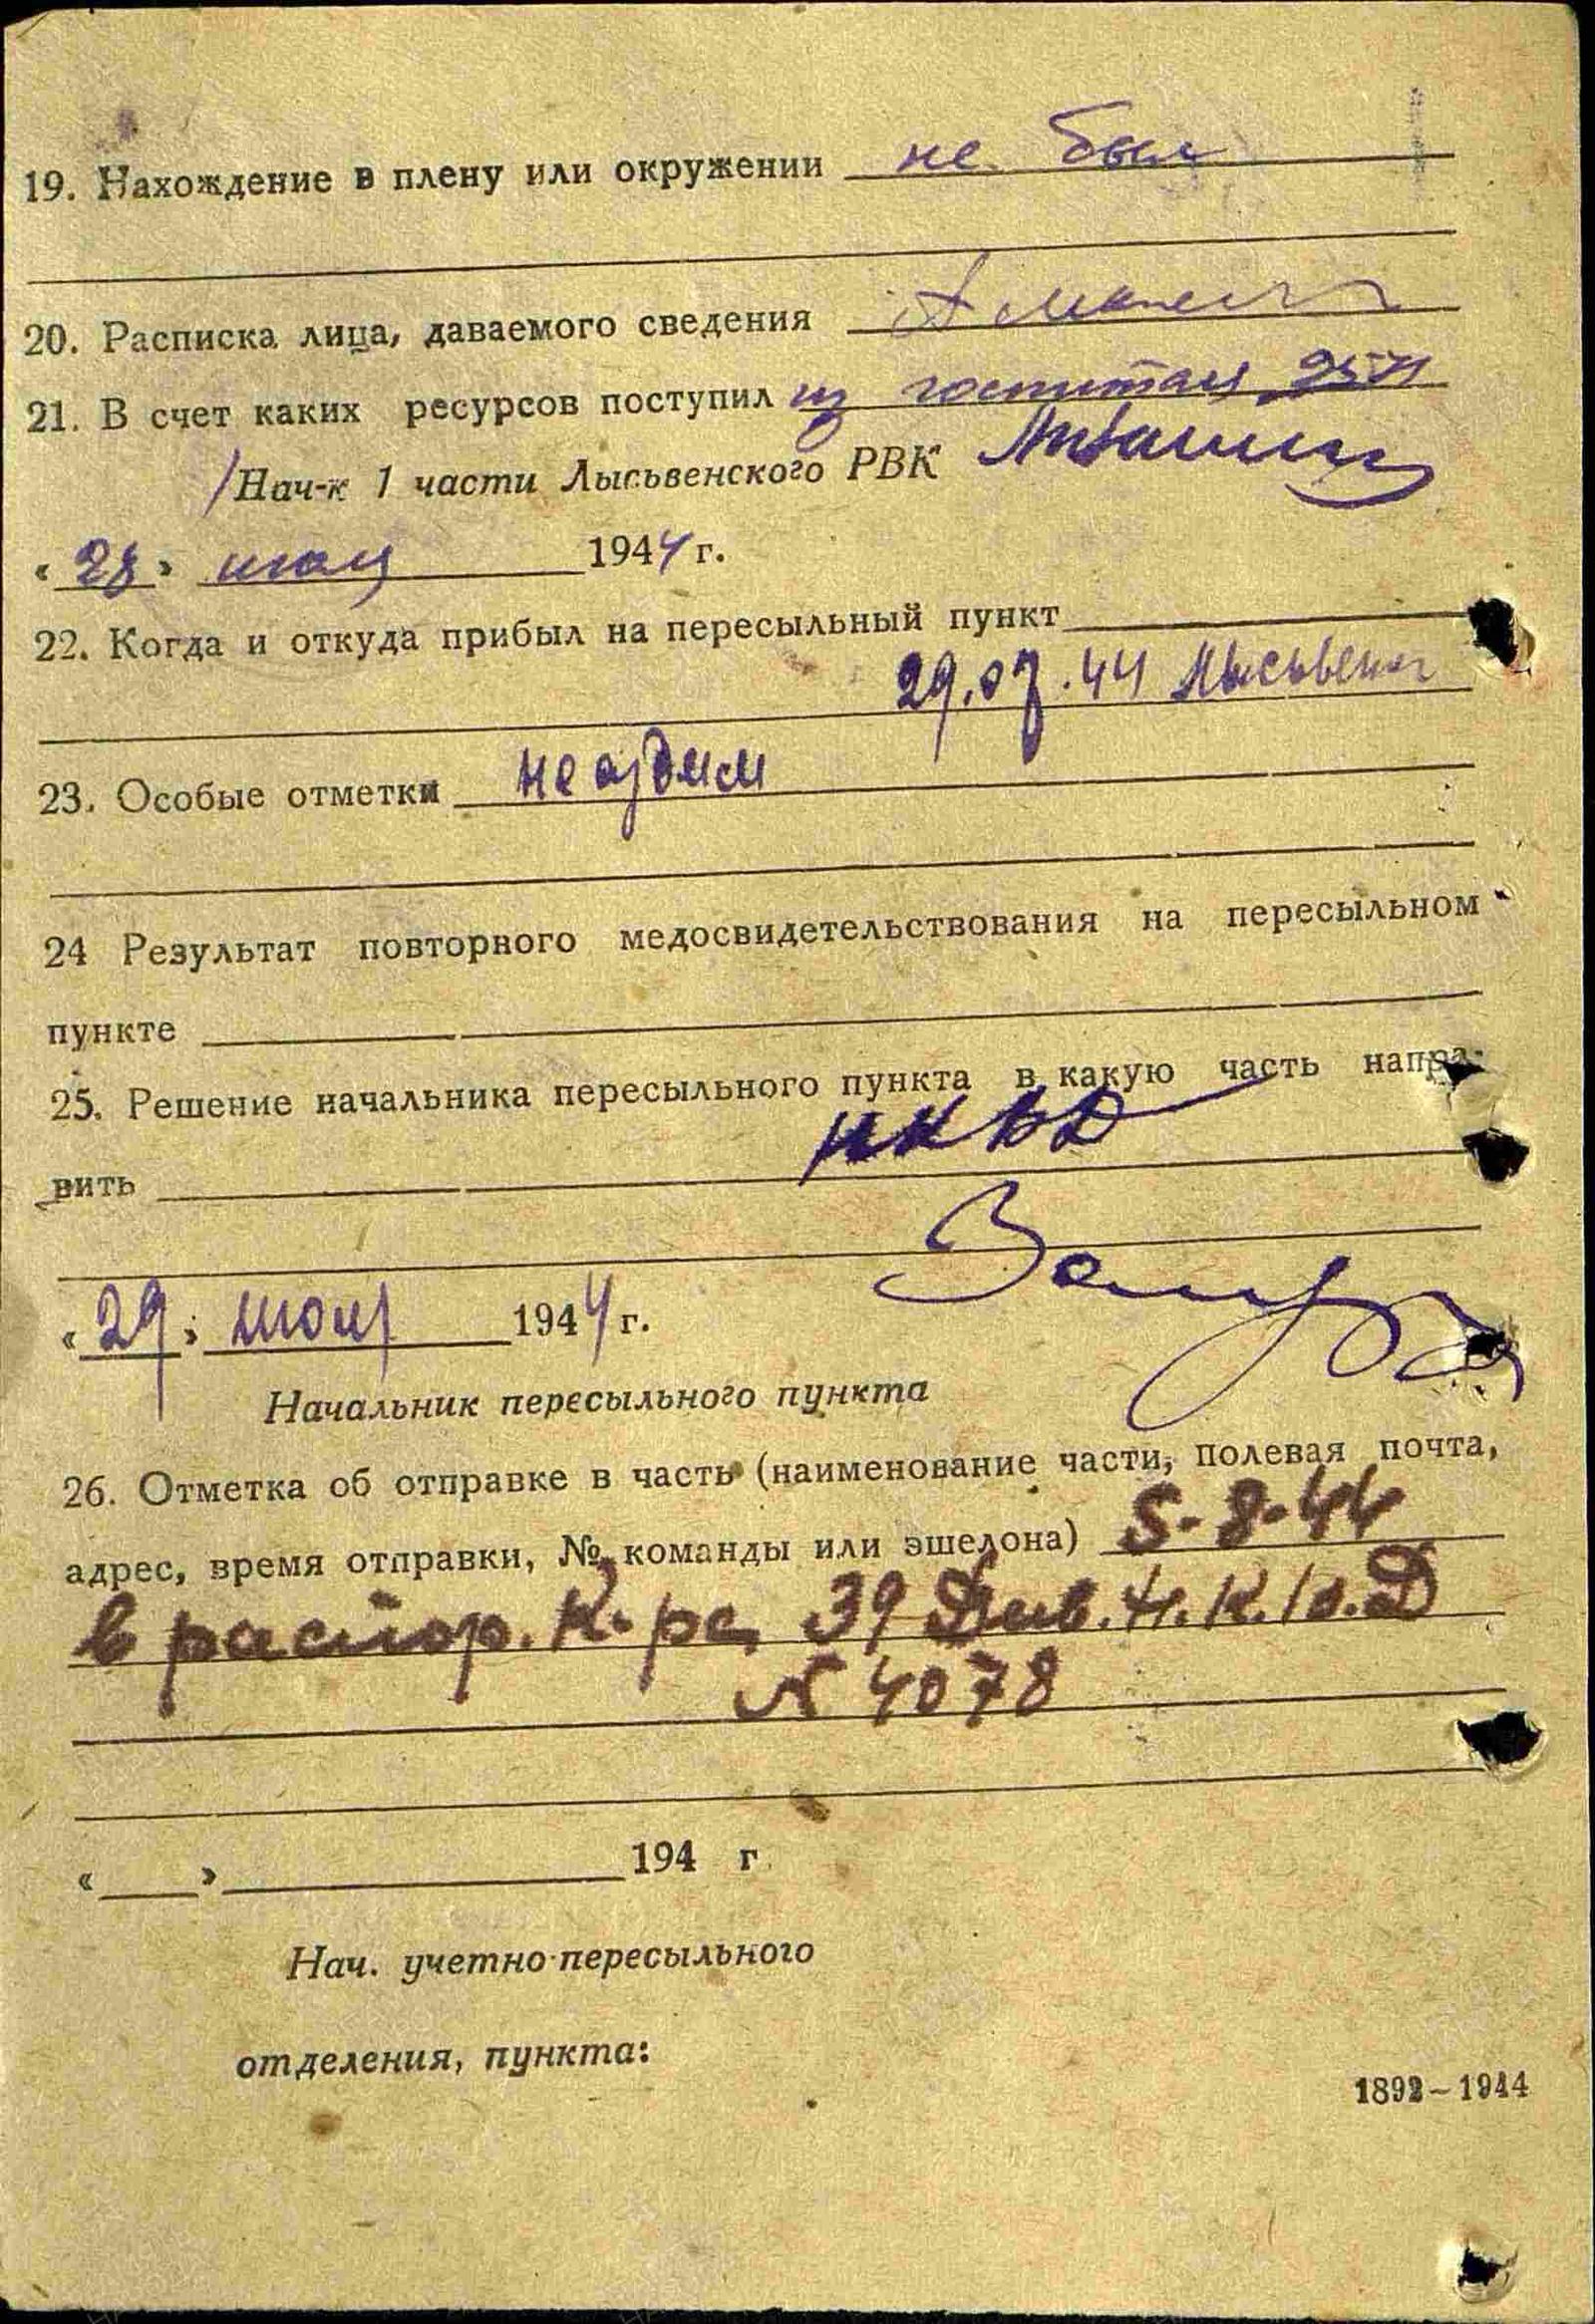 19. Нахождение в плену или окружении не был
20. Расписка лица, даваемого сведения
21. В счет каких ресурсов поступил из госпиталя
Нач-к 1 части Лысьвенского РВК
« 28 » июля 1944 г.
22. Когда и откуда прибыл на пересыльный пункт
29.07.44
23. Особые отметки
24 Результат повторного медосвидетельствования на пересыльном
пункте
25. Решение начальника пересыльного пункта в какую часть напра-
вить НКВД
« 29 » июля 1944 г.
Начальник пересыльного пункта
26. Отметка об отправке в часть (наименование части, полевая почта,
адрес, время отправки, № команды или эшелона) 5-8-44
в распор. К-ра 39 Див. Н.К.В.Д
N 4078
« » 194 г
Нач. учетно-пересыльного
отделения, пункта:
1892–1944